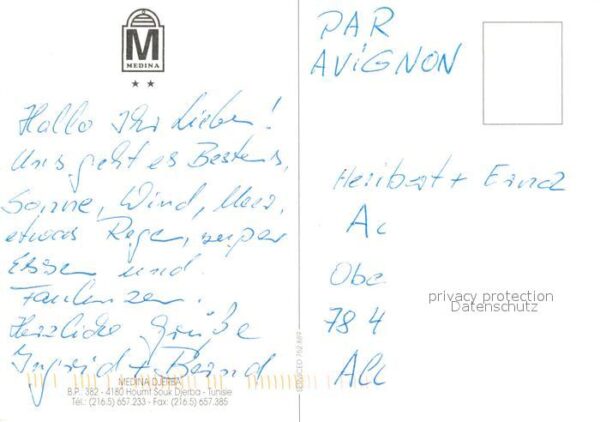 M
MEDINA
Hallo Ihr Lieben!
Uns geht es Bestens,
Sonne, Wind, Meer,
etwas Regen, super
Essen und
Faulenzen.
Herzliche Grüße
Ingrid + Bernd
MEDINA DJERBA
B.P.: 382 - 4180 Houmt Souk Djerba - Tunisie
Tél.: (216.5) 657.233 - Fax: (216.5) 657.385
PAR
AVIGNON
Heribert +
Obe
784
All
privacy protection
Datenschutz